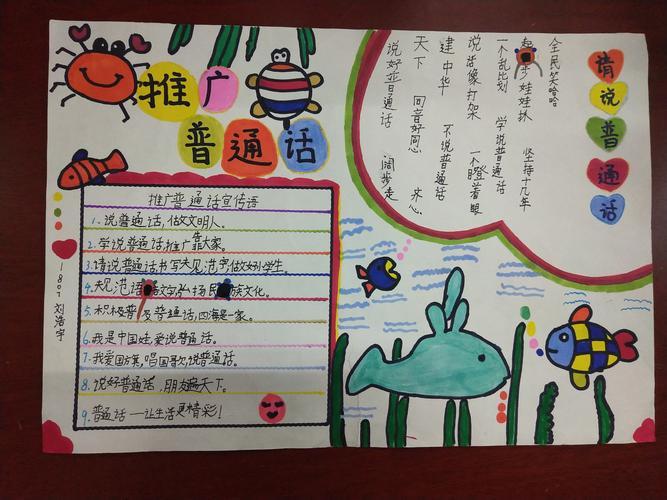 推广
普通话
推广普通话宣传语
1.说普通话,做文明人。
2.学说普通话,推广靠大家。
3.请说普通话书写夫见范字,做好小学生。
4.夫见范语文字弘扬民族文化。
5.积极普及普通话,四海是一家。
6.我是中国娃,爱说普通话。
7.我爱国旗,唱国歌,说普通话。
8.说好普通话,朋友遍天下。
9.普通话一让生活更精彩!
1807刘浩宇
请说普通话
全民笑哈哈
步娃娃抓 坚持十几年
一个乱比划 学说普通话
说话像打架 一个瞪着眼
建中华 不说普通话
天下 同音好同心
说好普通话 阔步走